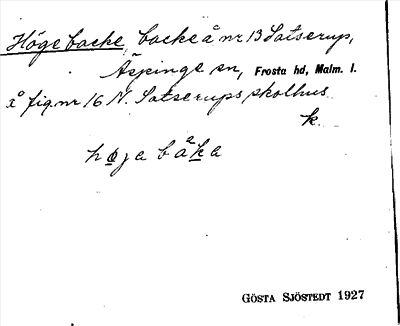 Höge backe, backe å nr 13 Satserup,
Äspinge sn, Frosta hd, Malm. l.
å fig. nr 16 N. Satserups skolhus.
k.
høja baka
GÖSTA SJÖSTEDT 1927